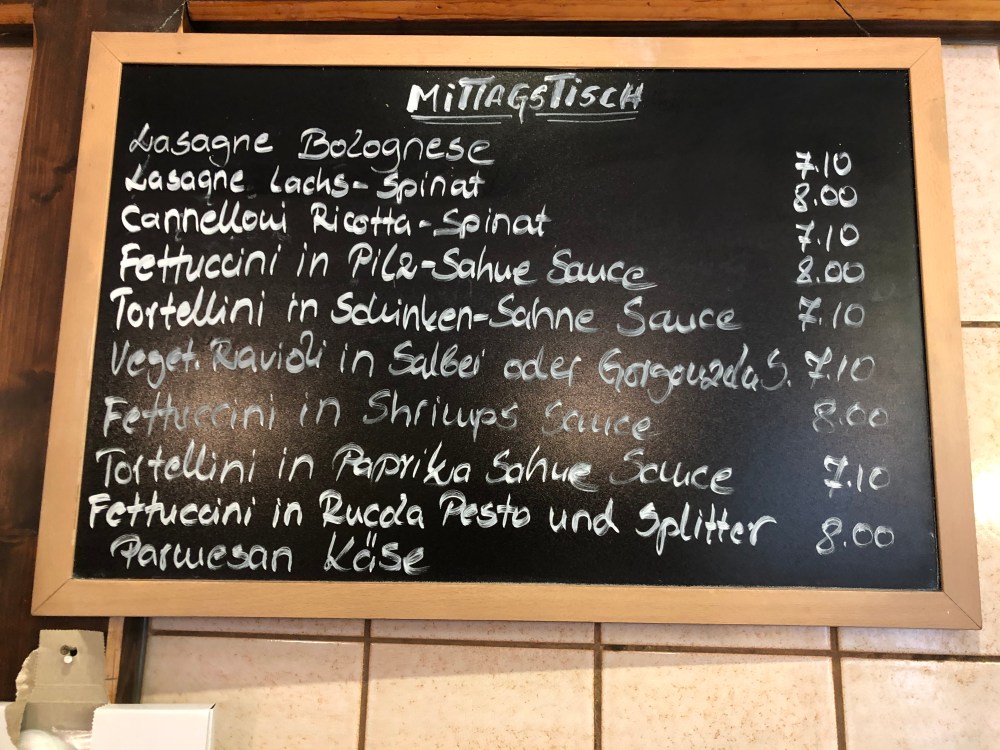 MITTAGSTISCH
Lasagne Bolognese 7.10
Lasagne Lachs-Spinat 8.00
Cannelloni Ricotta-Spinat 7.10
Fettuccini in Pilz-Sahne Sauce 8.00
Tortellini in Schinken-Sahne Sauce 7.10
Veget. Ravioli in Salbei oder Gorgonzola S. 7.10
Fettuccini in Shrimps Sauce 8.00
Tortellini in Paprika Sahne Sauce 7.10
Fettuccini in Rucola Pesto und Splitter 8.00
Parmesan Käse